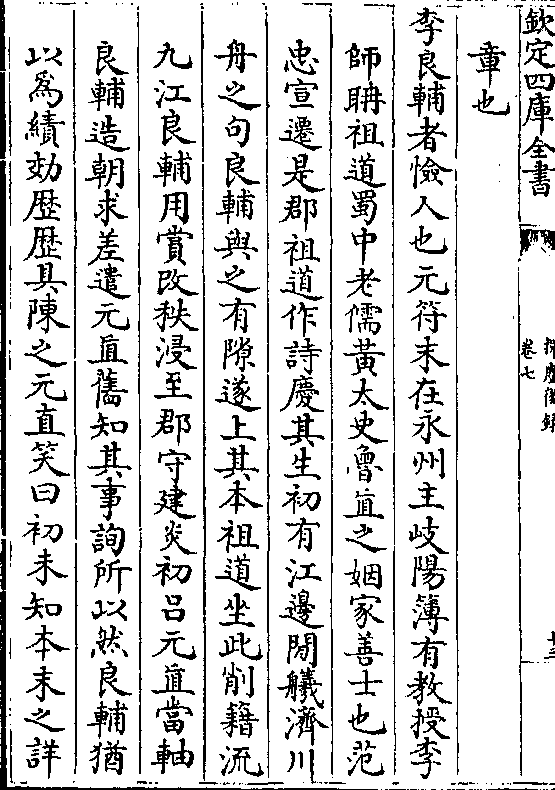 欽定四庫全書
卷七
章也
李良輔者憸人也元符末在永州主岐陽簿有教授李
師耼祖道蜀中老儒黃太史魯直之姻家善士也范
忠宣遷是郡祖道作詩慶其生初有江邊閒艤濟川
舟之句良輔與之有隙遂上其本祖道坐此削籍流
九江良輔用賞改秩浸至郡守建炎初呂元直當軸
良輔造朝求差遣元直舊知其事詢所以然良輔猶
以爲績効歴歴具陳之元直笑曰初未知本末之詳